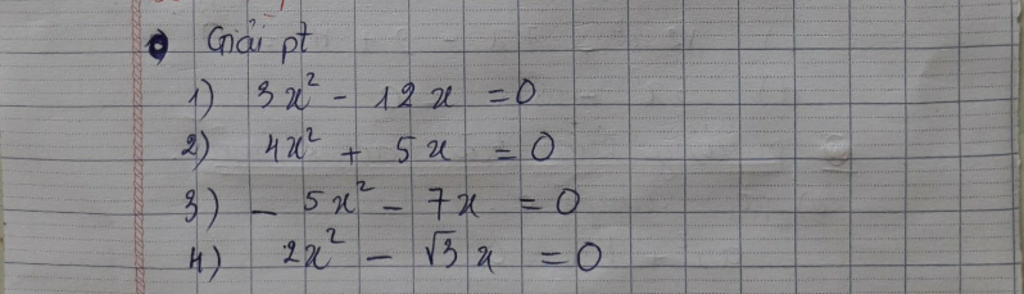 Giải pt
1) 3x² - 12x = 0
2) 4x² + 5x = 0
3) - 5x² - 7x = 0
4) 2x² - √3 x = 0